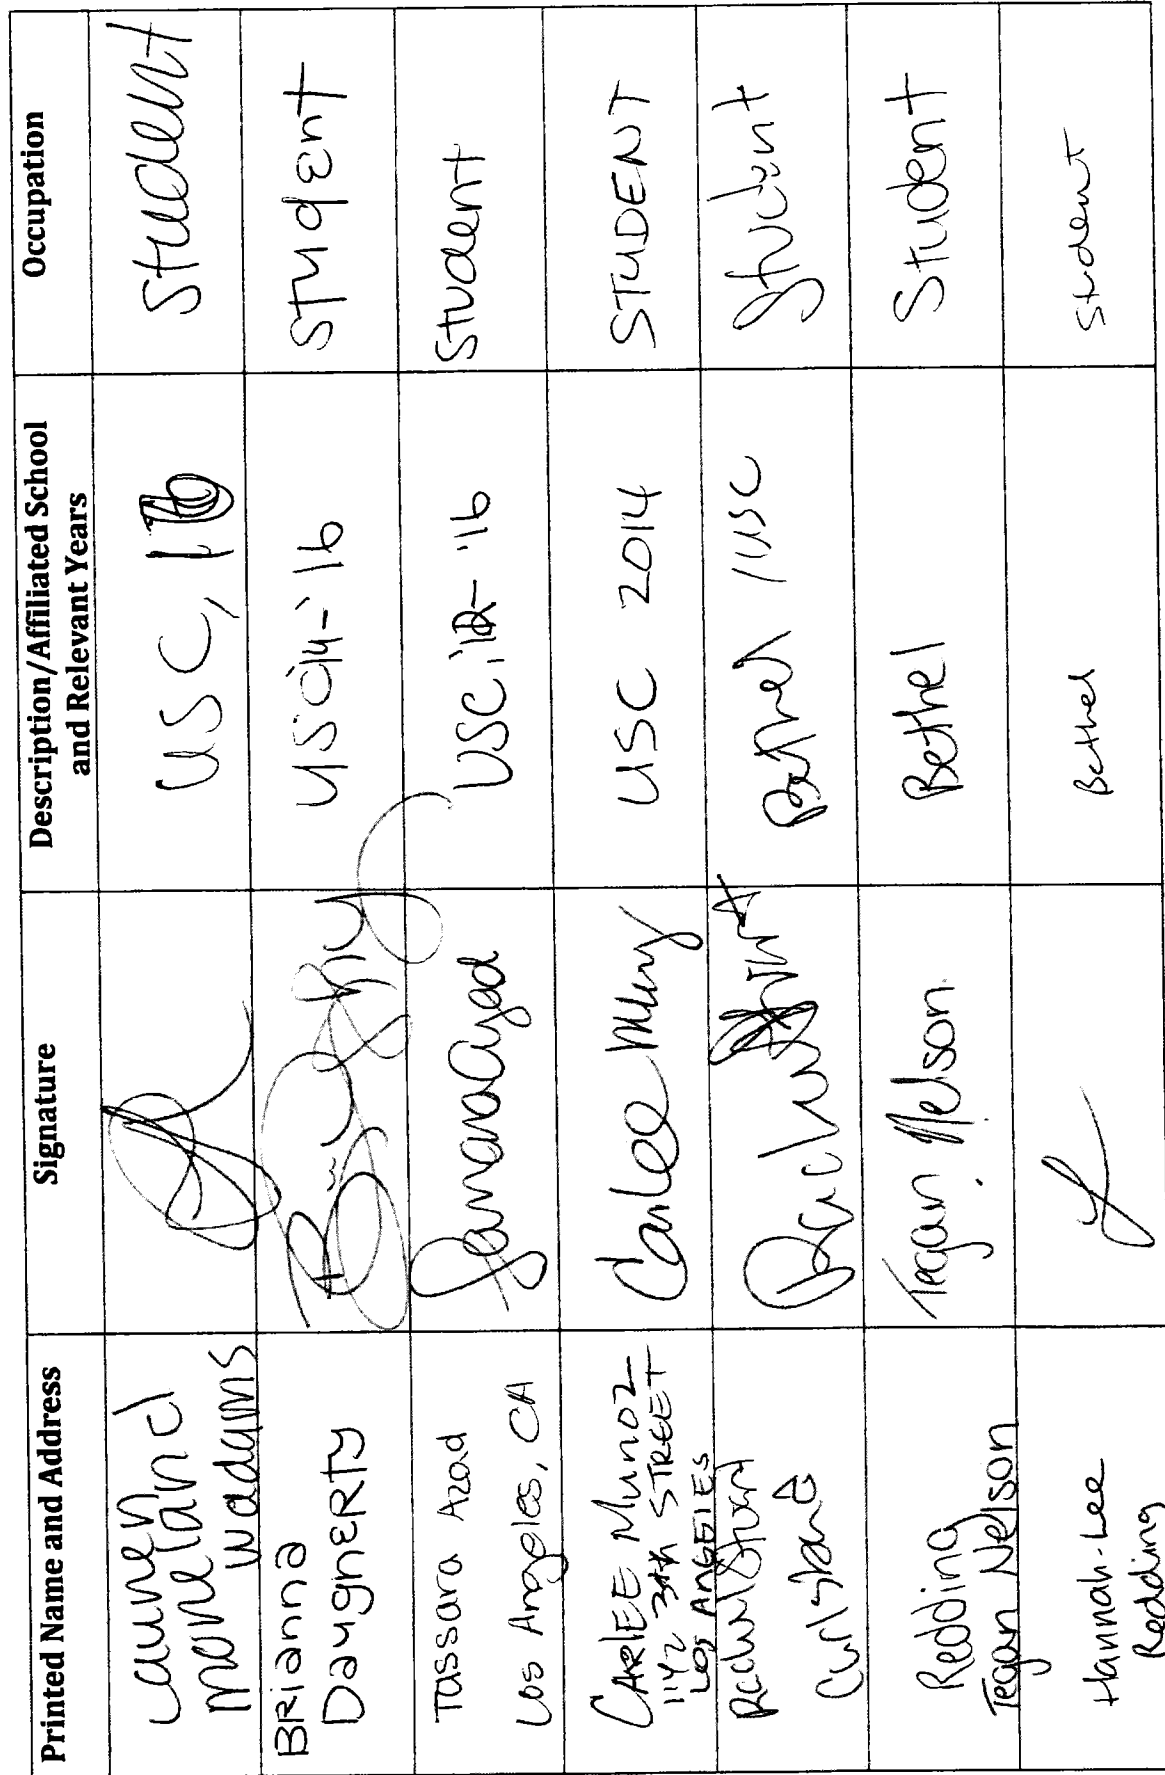 Printed Name and Address
Signature
Description/Affiliated School
and Relevant Years
Occupation
Lauren
Moreland
Wadams
USC, 16
Student
BRianna
DaugHERTY
USC '14-'16
STUdEnT
Tassara Azad
Los Angeles, CA
USC, '12-'16
Student
CARLEE MUNOZ
1142 34th STREET
LOS ANGELES
Carlee Munoz
USC 2014
STUDENT
Rachel Stuart
Carlsbad
Bethel /USC
Student
Redding
Tegan Nelson
Tegan Nelson
Bethel
Student
Hannah-Lee
Redding
Bethel
Student